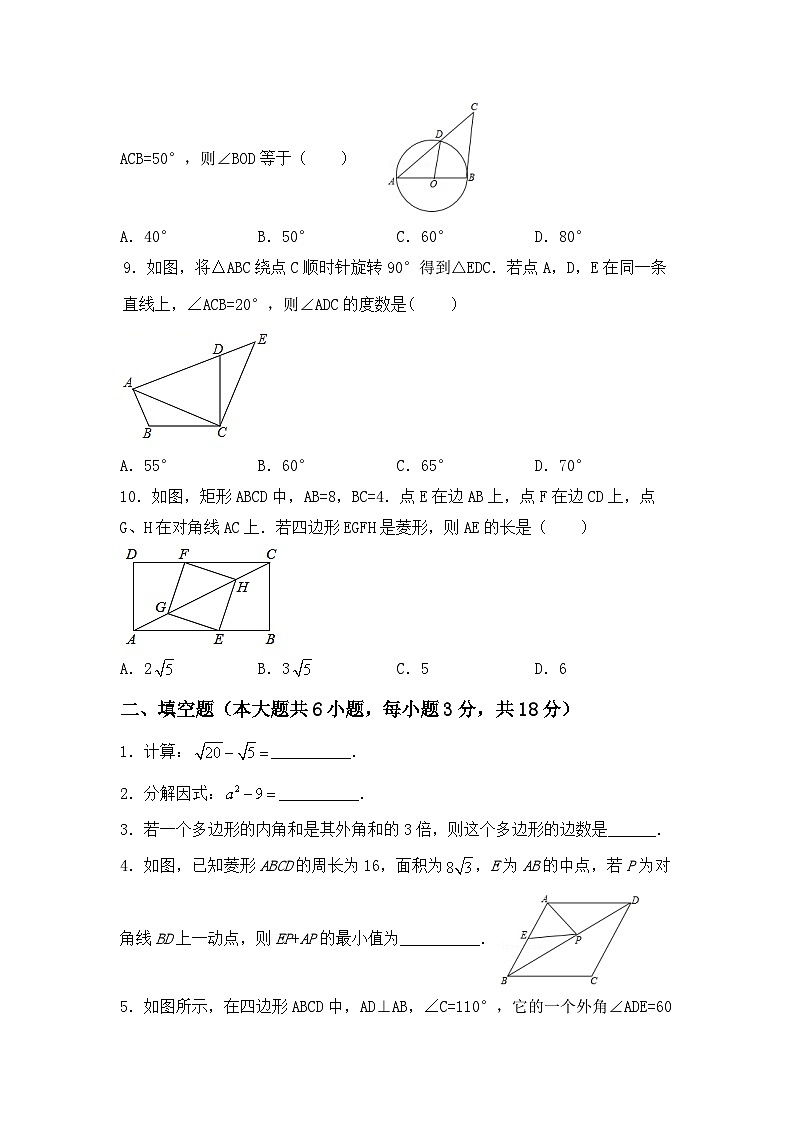 C
D
A O B
ACB=50°,则∠BOD等于(  )
A. 40° B. 50° C. 60° D. 80°
9. 如图,将△ABC绕点C顺时针旋转90°得到△EDC.若点A,D,E在同一条
直线上,∠ACB=20°,则∠ADC的度数是(  )
D E
A
B C
A. 55° B. 60° C. 65° D. 70°
10. 如图,矩形ABCD中,AB=8,BC=4.点E在边AB上,点F在边CD上,点
G、H在对角线AC上.若四边形EGFH是菱形,则AE的长是(  )
D F C
H
G
A E B
A. 2√5 B. 3√5 C. 5 D. 6
二、填空题(本大题共6小题,每小题3分,共18分)
1. 计算:√20-√5=__________.
2. 分解因式:a²-9=__________.
3. 若一个多边形的内角和是其外角和的3倍,则这个多边形的边数是______.
4. 如图,已知菱形ABCD的周长为16,面积为8√3,E为AB的中点,若P为对
A D
E P
B C
角线BD上一动点,则EP+AP的最小值为__________.
5. 如图所示,在四边形ABCD中,AD⊥AB,∠C=110°,它的一个外角∠ADE=60